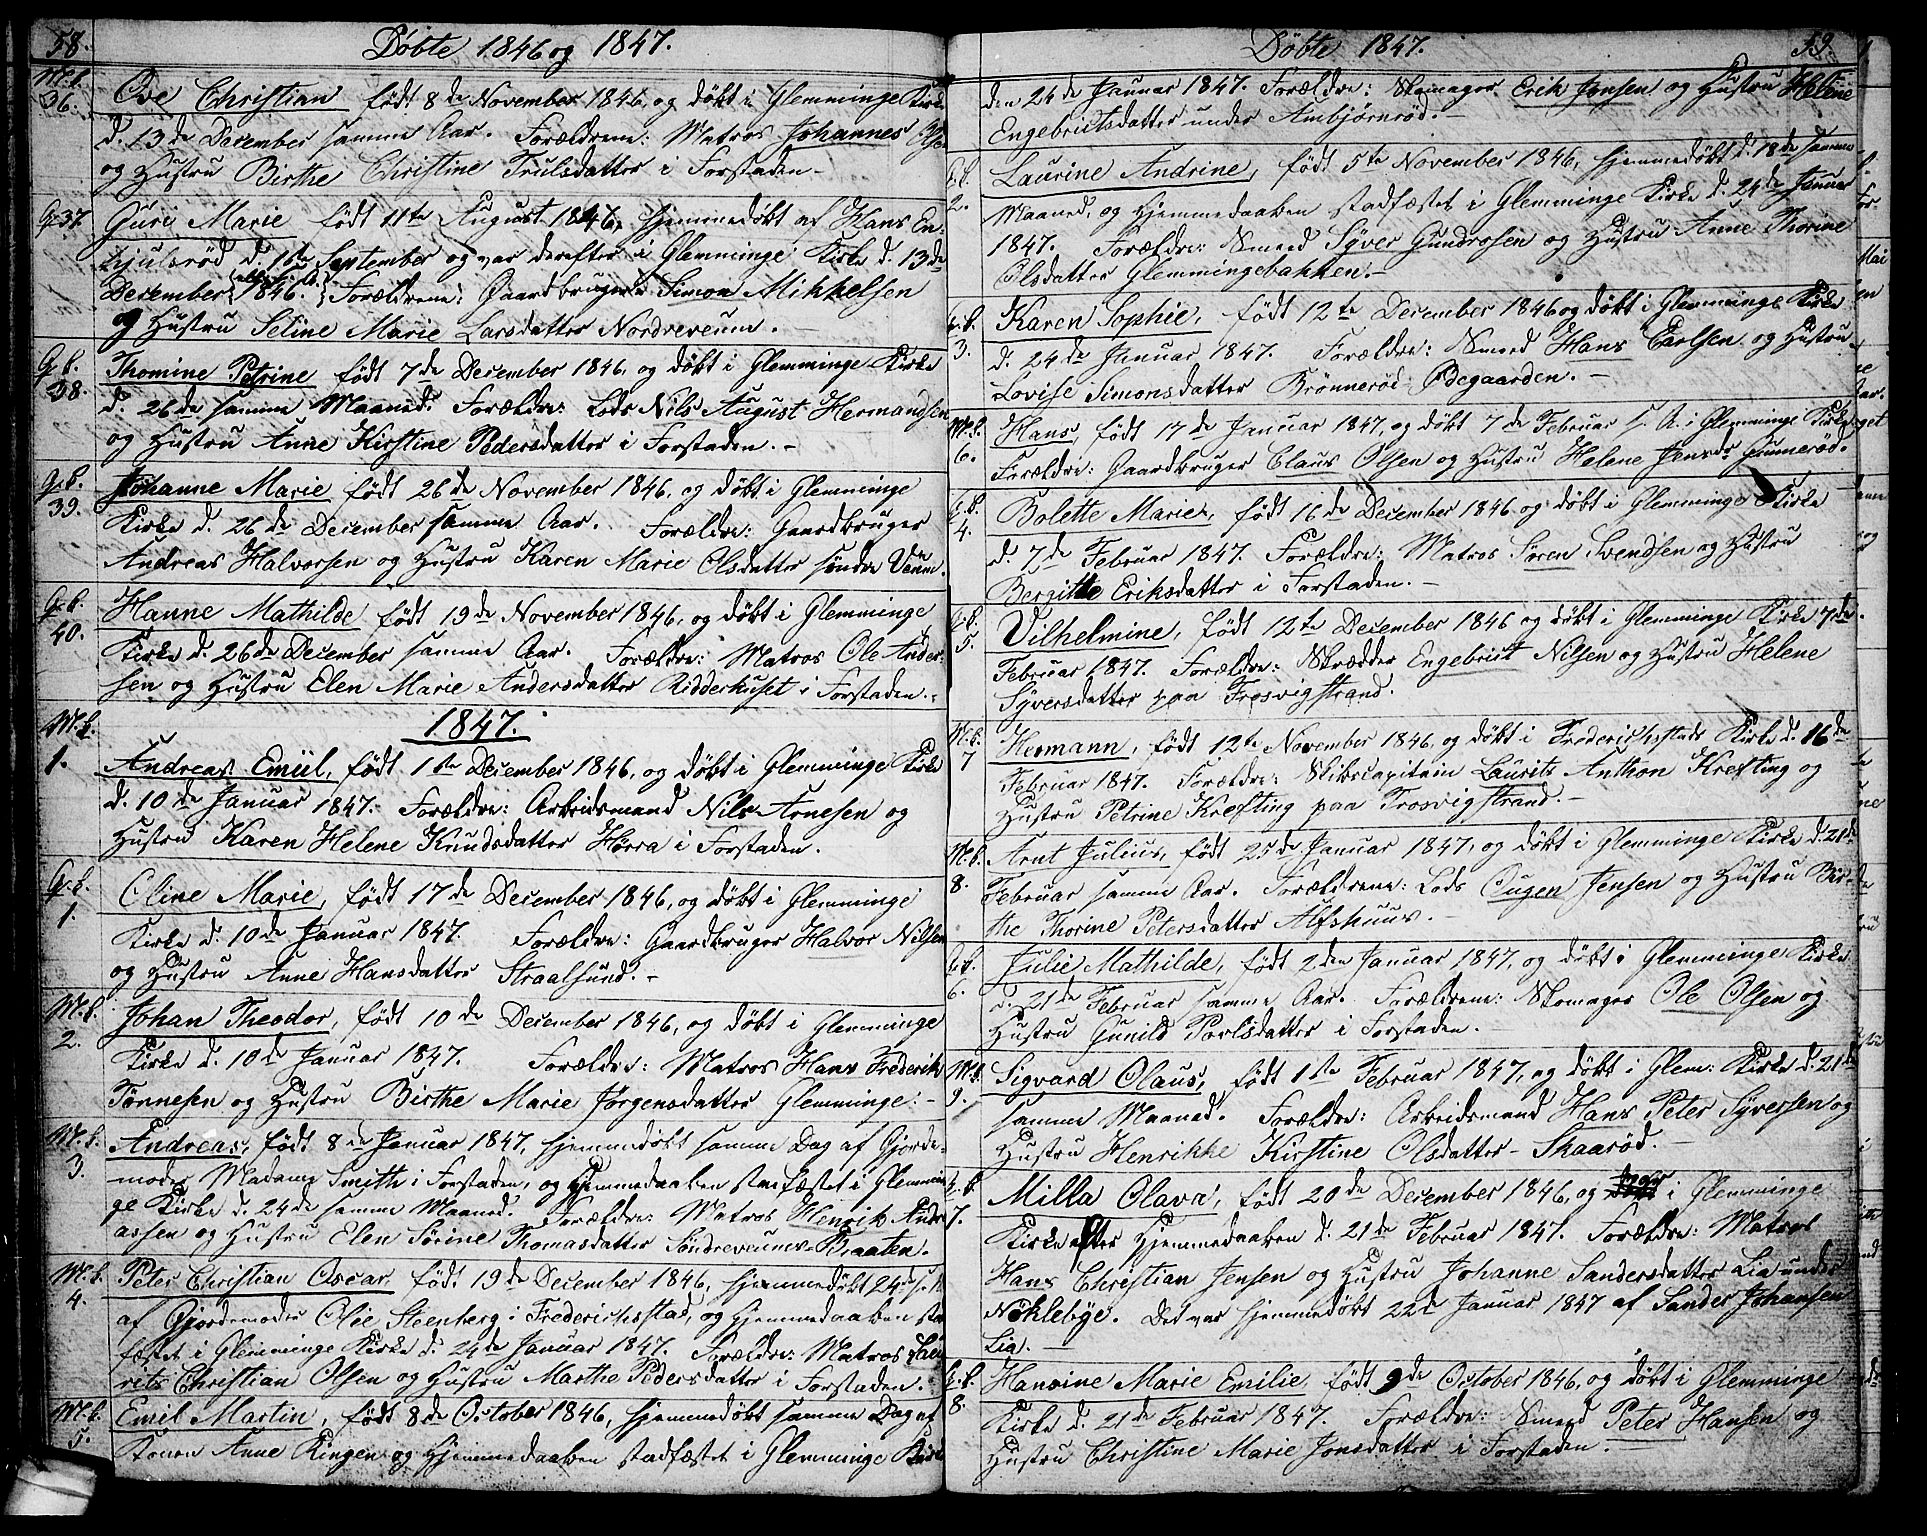 58.
Döbte 1846 og 1847.
M. k.
36.
Ove Christian födt 8de November 1846, og döbt i Glemminge Kirke
d. 13de December samme Aar. Forældrene: Matros Johannes Olse
og Hustru Birthe Christine Trulsdatter i Forstaden. -
G. 37.
Guri Marie födt 11te August 1846, hjemmedöbt af Hans En-
kjulsröd d. 1ste September og var derefter i Glemminge Kirke d. 13de
December 1846. Forældrene: Gaardbruger Simon Mikkelsen
og Hustru Seline Marie Larsdatter Nordreveum. -
G. k.
38.
Thomine Petrine födt 7de December 1846, og döbt i Glemminge Kirke
d. 26de samme Maaned. Forældre: Lods Nils August Hermandsen
og Hustru Anne Kirstine Pedersdatter i Forstaden. -
G. k.
39.
Johanne Marie födt 26de November 1846, og döbt i Glemminge
Kirke d. 26de December samme Aar. Forældre: Gaardbruger
Andreas Halvorsen og Hustru Karen Marie Olsdatter söndre Veum.
G. k.
40.
Hanne Mathilde födt 19de November 1846, og döbt i Glemminge
Kirke d. 26de December samme Aar. Forældre: Matros Ole Ander-
sen og Hustru Elen Marie Andersdatter Ridderhuset i Forstaden. -
1847.
M. k.
1.
Andreas Emiil, födt 1ste December 1846, og döbt i Glemminge Kirke
d. 10de Januar 1847. Forældre: Arbeidsmand Nils Arnesen og
Hustru Karen Helene Knudsdatter Hörra i Forstaden.
G. k.
1.
Oline Marie, födt 17de December 1846, og döbt i Glemminge
Kirke d. 10de Januar 1847. Forældre: Gaardbruger Halvor Nilsen
og Hustru Anne Hansdatter Straalsund. -
M. k.
2.
Johan Theodor, födt 10de December 1846, og döbt i Glemminge
Kirke d. 10de Januar 1847. Forældre: Matros Hans Frederik
Tönnesen og Hustru Birthe Marie Jörgensdatter Glemminge: -
M. k.
3.
Andreas, födt 8de Januar 1847, hjemmedöbt samme Dag af Gjorde-
moder Madame Smith i Forstaden, og Hjemmedaaben stadfæstet i Glemmin
ge Kirke d. 24de samme Maaned. Forældre: Matros Henrik Andre
assen og Hustru Elen Sörine Thomasdatter Söndreveums-Braaten.
M. k.
4.
Peter Christian Oscar, födt 19de December 1846, hjemmedöbt 24de s.
af Gjordemoder Olie Steenberg i Frederichsstad, og hjemmedaaben stad
fæstet i Glemminge Kirke d. 24de Januar 1847. Forældre: Matros Lau
rits Christian Olsen og Hustru Marthe Pedersdatter i Forstaden. -
M. k.
5.
Emil Martin, födt 8de October 1846, hjemmedöbt samme Dag af
Konen Anne Ringen og Hjemmedaaben stadfæstet i Glemminge Kirke
Döbte 1847.
59.
den 24de Januar 1847. Forældre: Skomager Erik Jensen og Hustru Helene
Engebrictsdatter under Ambjörnröd. -
G. k.
2.
Laurine Andrine, födt 5te November 1846, hjemmedöbt d. 18de samme
Maaned, og Hjemmedaaben stadfæstet i Glemminge Kirke d. 24de Januar
1847. Forældre: Smeed Syver Gundrosen og Hustru Anne Thorine
Olsdatter Glemmingebakken. -
G. k.
3.
Karen Sophie, födt 12te December 1846 og döbt i Glemminge Kirke
d. 24de Januar 1847. Forældre: Smeed Hans Carlsen og Hustru
Lovise Simonsdatter Brönneröd Ödegaarden. -
M. k.
6.
Hans, födt 17de Januar 1847, og döbt 7de Februar s. A. i Glemminge Kirke
Forældre: Gaardbruger Claus Olsen og Hustru Helene Jensdr Gunneröd.
G. k.
4.
Bolette Marie, födt 16de December 1846 og döbt i Glemminge Kirke
d. 7de Februar 1847. Forældre: Matros Sören Svendsen og Hustru
Bergitte Eriksdatter i Forstaden. -
G. k.
5.
Vilhelmine, födt 12te December 1846 og döbt i Glemminge Kirke 7de
Februar 1847. Forældre: Skrædder Engebrict Nilsen og Hustru Helene
Syversdatter paa Trosvigstrand.
M. k.
7
Hermann, födt 12te November 1846, og döbt i Frederichsstads Kirke d. 16de
Februar 1847. Forældre: Skibscapitain Laurits Anthon Krefting og
Hustru Petrine Krefting paa Trosvigstrand. -
M. k.
8.
Arnt Julius, födt 25de Januar 1847, og döbt i Glemminge Kirke d. 21de
Februar samme Aar. Forældrene: Lods Eugen Jensen og Hustru Bir-
the Thorine Petersdatter Alfshuus. -
G. k.
6.
Julie Mathilde, födt 2den Januar 1847, og döbt i Glemminge Kirke
d. 21de Februar samme Aar. Forældrene: Skomager Ole Olsen og
Hustru Gunild Povlsdatter i Forstaden. -
M. k.
9.
Sigvard Olaus, födt 1ste Februar 1847, og döbt i Glem: Kirke d. 21de
samme Maaned. Forældre: Arbeidsmand Hans Peter Syversen og
Hustru Henrikke Kirstine Olsdatter - Skaaröd. -
G. k.
7.
Milla Olava, födt 20de December 1846, og i Glemminge
Kirke efter Hjemmedaaben d. 21de Februar 1847. Forældre: Matros
Hans Christian Jensen og Hustru Johanne Sandersdatter Lia under
Nöklebye. Det var hjemmedöbt 22de Januar 1847 af Sander Johansen
Lia. -
G. k.
8.
Hansine Marie Emilie, födt 9de October 1846, og döbt i Glemminge
Kirke d. 21de Februar 1847. Forældre: Smeed Peter Hansen og
Hustru Christine Marie Jonsdatter i Forstaden.